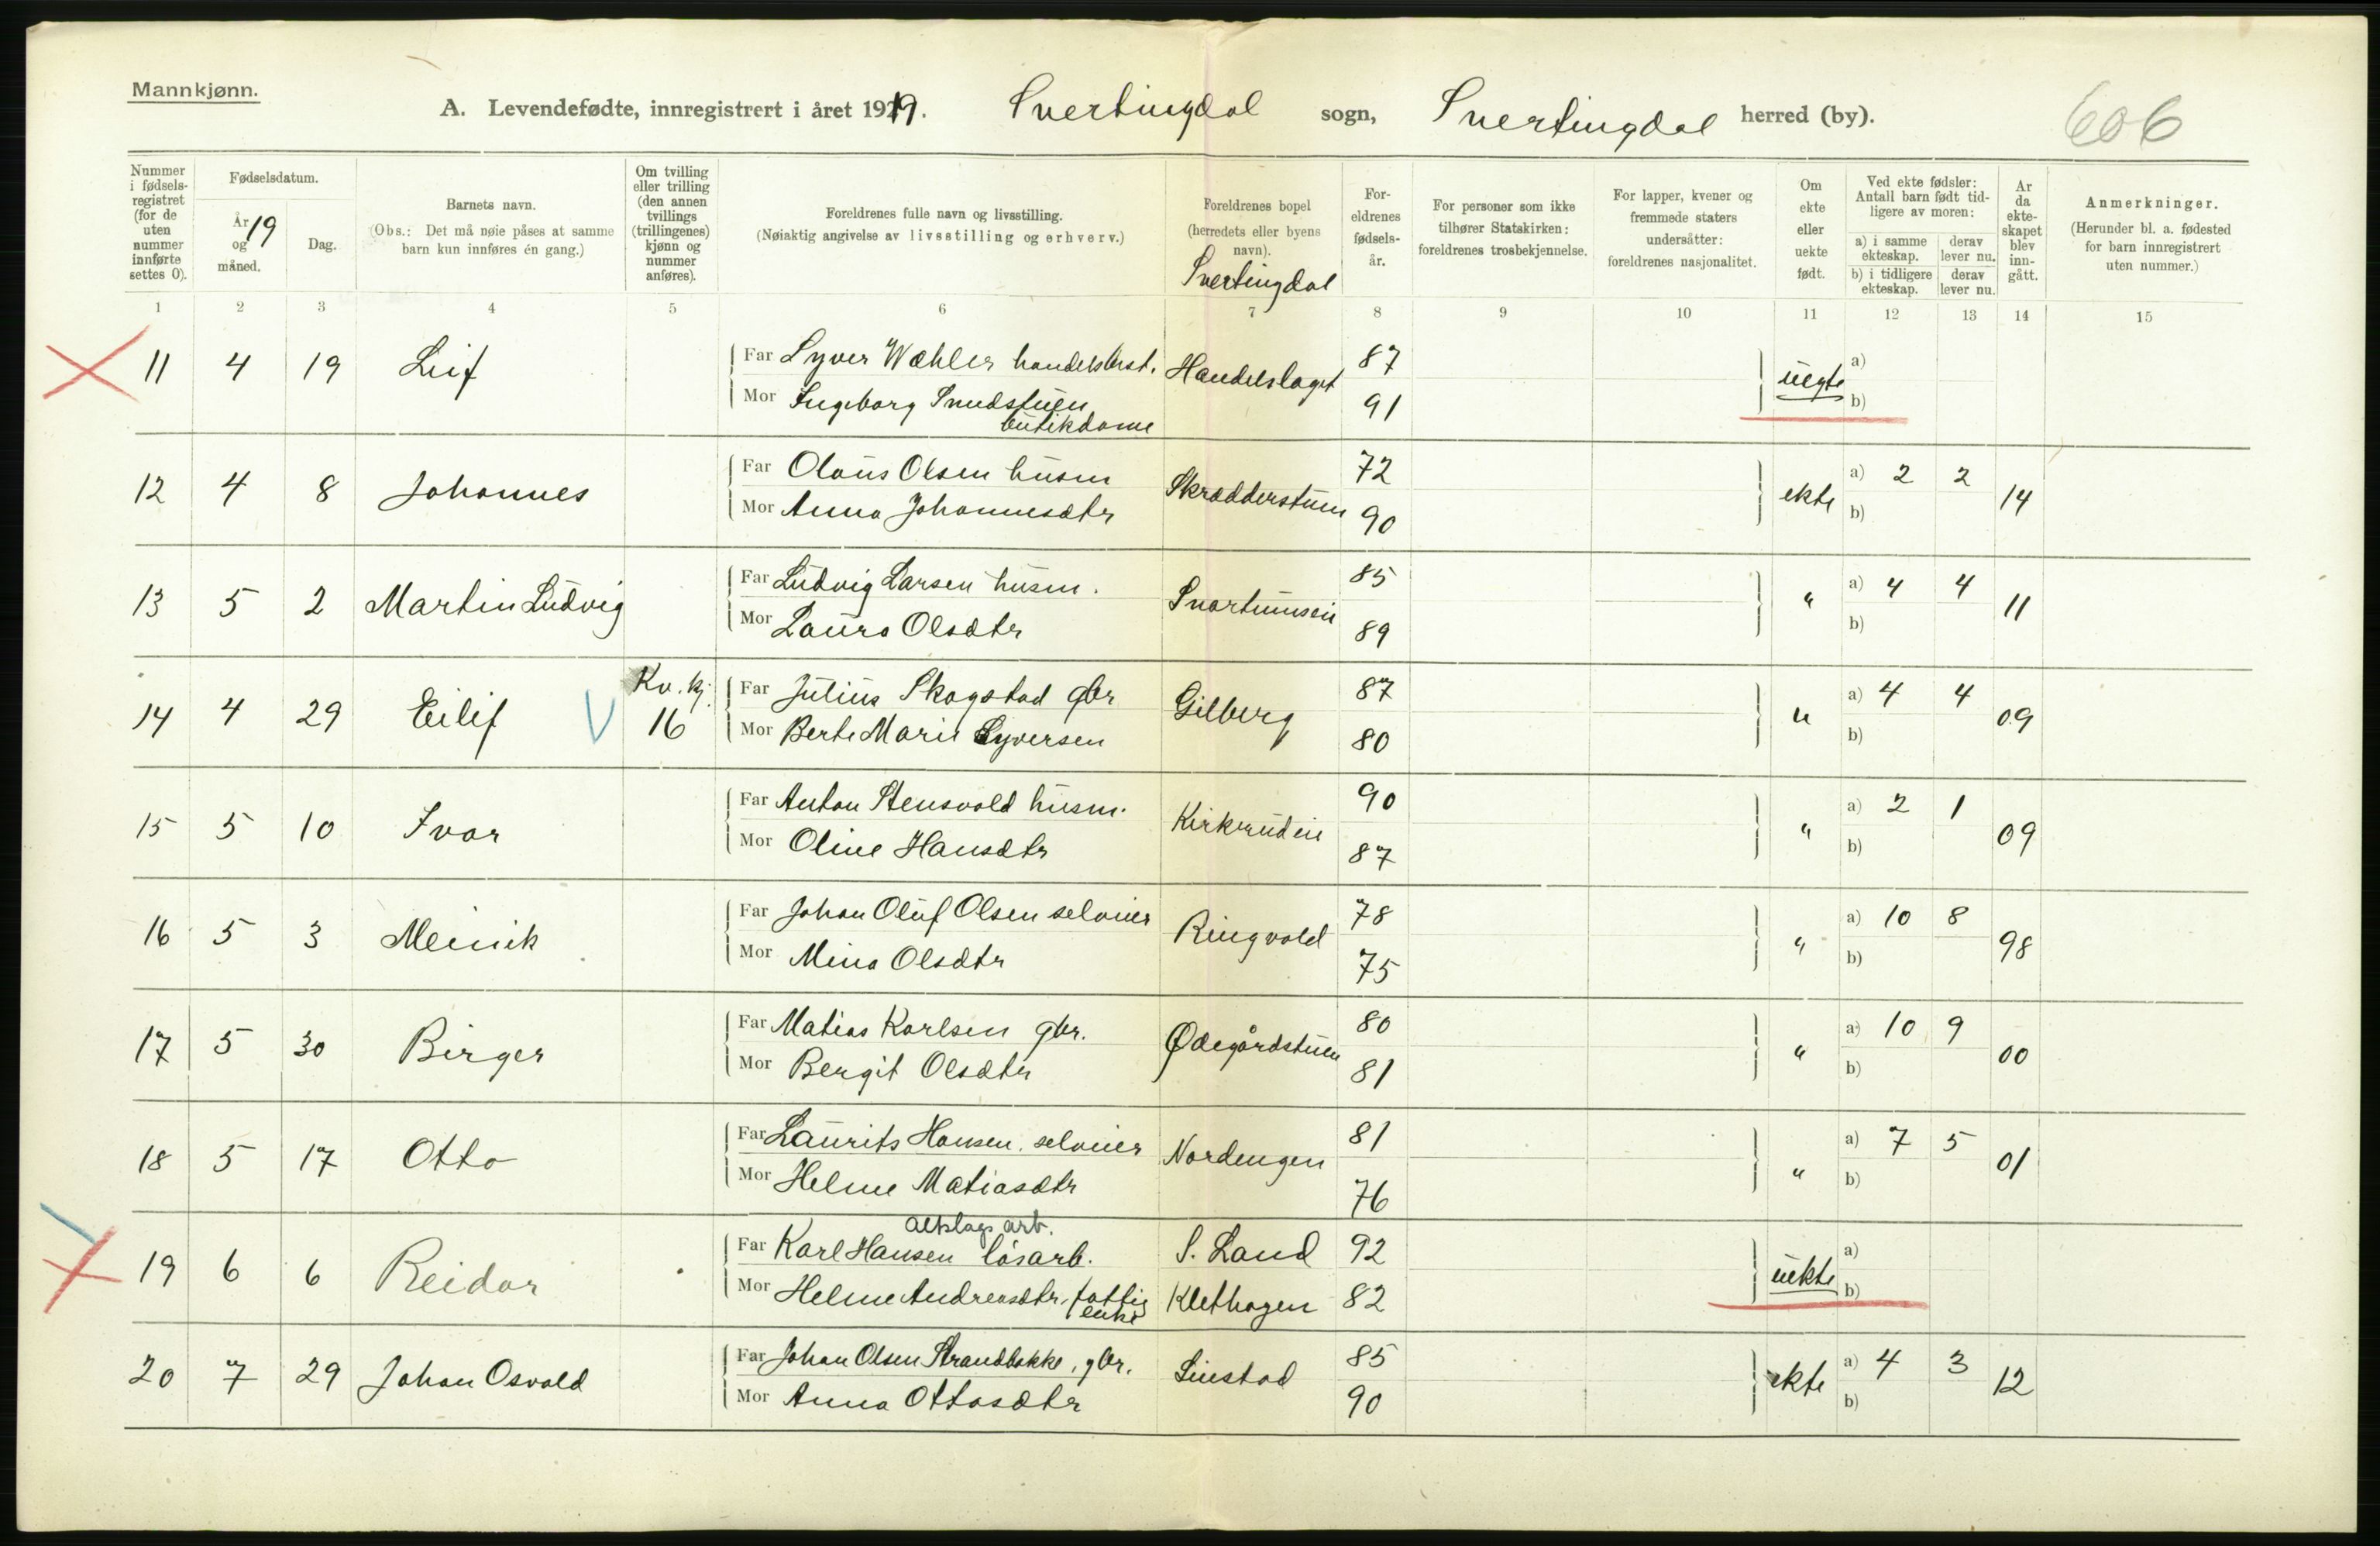 Mannkjønn.
A. Levendefødte, innregistrert i året 1919. Snertingdal sogn, Snertingdal herred (by). 606
Nummer i fødsels-registret (for de uten nummer innførte settes 0).
Fødselsdatum.
År 19 og måned.
Dag.
Barnets navn.
(Obs.: Det må nøie påses at samme barn kun innføres én gang.)
Om tvilling eller trilling (den annen tvillings (trillingenes) kjønn og nummer anføres).
Foreldrenes fulle navn og livsstilling.
(Nøiaktig angivelse av livsstilling og erhverv.)
Foreldrenes bopel (herredets eller byens navn).
Snertingdal
For-eldrenes fødsels-år.
For personer som ikke tilhører Statskirken: foreldrenes trosbekjennelse.
For lapper, kvener og fremmede staters undersåtter: foreldrenes nasjonalitet.
Om ekte eller uekte født.
Ved ekte fødsler: Antall barn født tid-ligere av moren:
a) i samme ekteskap. derav lever nu.
b) i tidligere ekteskap. derav lever nu.
Ar da ekte-skapet blev inn-gått.
Anmerkninger.
(Herunder bl. a. fødested for barn innregistrert uten nummer.)
1 2 3 4 5 6 7 8 9 10 11 12 13 14 15
11 4 19 Leif Far Syver Wæhler handelsbest. Handelslaget 87 uegte a)
Mor Ingeborg Snudstuen butikdame 91 b)
12 4 8 Johannes Far Olaus Olsen husm Skrædderstuen 72 ekte a) 2 2 14
Mor Anna Johannesdtr 90 b)
13 5 2 Martin Ludvig Far Ludvig Larsen husm. Svartumseie 85 " a) 4 4 11
Mor Laura Olsdtr 89 b)
14 4 29 Eilif V Kv. kj. 16 Far Julius Skogstad gbr Gilberg 87 " a) 4 4 09
Mor Berte Marie Syversen 80 b)
15 5 10 Ivar Far Anton Stensvold husm. Kirkerudeie 90 " a) 2 1 09
Mor Oline Hansdtr 87 b)
16 5 3 Meinik Far Johan Oluf Olsen selveier Ringvold 78 " a) 10 8 98
Mor Mina Olsdtr 75 b)
17 5 30 Birger Far Matias Karlsen gbr. Ødegårdstuen 80 " a) 10 9 00
Mor Bergit Olsdtr 81 b)
18 5 17 Otto Far Laurits Hansen selveier Nordengen 81 " a) 7 5 01
Mor Helme Matiasdtr 76 b)
19 6 6 Reidar Far Karl Hansen løsarb. arb. S. Land 92 uekte a)
Mor Helme Andreasdtr, fattig enke Klethagen 82 b)
20 7 29 Johan Osvald Far Johan Olsen Strandbakke, gbr. Linstad 85 ekte a) 4 3 12
Mor Anna Ottosdtr 90 b)